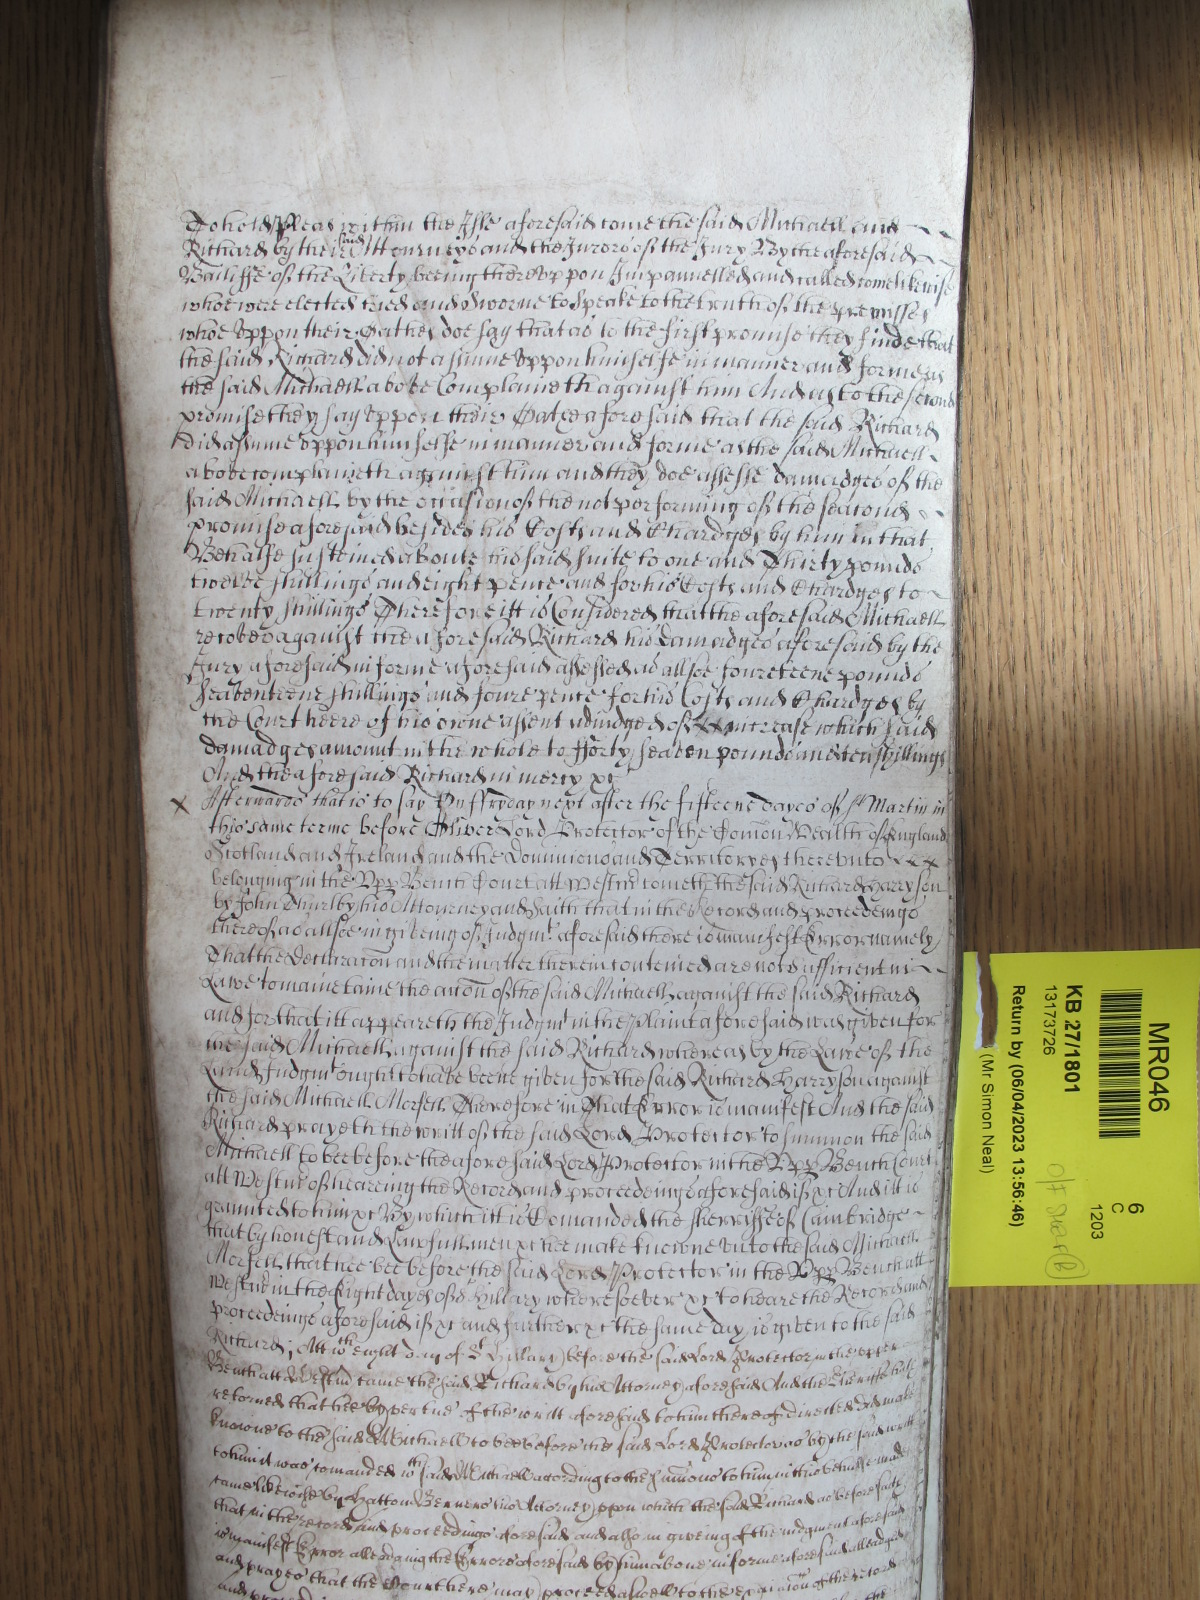 To hold Pleas within the Isle aforesaid come the said Michaell and
Richard by their said Attorneyes and the Jurors of the Jury By the aforesaid
Bailiffe of the Liberty beeing thereuppon Impannelled and called come likewise
whoe were elected tried and sworne to speake to the truth of the premisses
whoe uppon their Oathes doe say that as to the first promise they finde that
the said Richard did not assume uppon himselfe in manner and forme as
the said Michaell above Complaineth against him And as to the second
promise they say uppon their Oathes aforesaid that the said Richard
did assume uppon himselfe in manner and forme as the said Michaell
above complaineth against him and they doe assesse damadges of the
said Michaell by the occasion of the not performing of the seacond
promise aforesaid besides his Costs and Chardges by him in that
Behalfe susteined aboute his said suite to one and Thirty pounds
twelve shillings and eight pence and for his Costs and Chardges to
twenty shillings Therefore itt is Considered that the aforesaid Michaell
recover against the aforesaid Richard his damadges aforesaid by the
Jury aforesaid in forme aforesaid assessed as allsoe foureteene pounds
Seaventeene shillings and foure pence for his Costs and Chardges by
the Court heere of his owne assent adiudged of increase which said
damadges amount in the whole to fforty seaven pounds and ten shillings
And the aforesaid Richard in mercy &c
x Afterwards that is to say On ffryday next after the fifteene dayes of St Martin in
this same terme before Oliver Lord Protector of the Comon Wealth of England
Scotland and Ireland and the Dominions and Territoryes thereunto
belonging in the Upp Bench Court att Westmr cometh the said Richard Harryson
by John Thurlby his Attourney and saith that in the Record and proceedeings
thereof as allsoe in giveing of Judgmt aforesaid there is manifest Error namely
That the Declaracon and the matter therein conteined are not sufficient in
Lawe to maintaine the accon of the said Michaell against the said Richard
and for that itt appeareth the Judgmt in the plaint aforesaid was given for
the said Michaell against the said Richard whereas by the Lawe of the
Land Judgmt ought to have beene given for the said Richard Harryson against
the said Michaell Morsell Therefore in That Error is manifest And the said
Richard prayeth the writt of the said Lord Protector to summon the said
Michaell to bee before the aforesaid Lord Protector in the Upp Bench Court
att Westmr of heareing the Record and proceedeings aforesaid if &c And itt is
graunted to him &c By which itt is Comanded the Sherriffe of Cambridge
that by honest and Lawfull men &c hee make knowne unto the said Michaell
Morsell that hee bee before the said Lord Protector in the Upp Bench att
Westmr in the Eight dayes of St Hillary wheresoever &c to heare the Record and
proceedeings aforesaid if &c and further &c the same day is given to the said
Richard ; Att wch eight day of St Hillary before the said Lord Protector in the upper
Bench att Westmr came the said Richard by his Attorney aforesaid And the Sheriffe hath
retorned that hee by vertue of the writt aforesaid to him thereof directed did make
knowne to the said Michaell to bee before the said Lord Protector as by the said writt
to him it was comanded wch said Michaell according to the summons to him in this behalfe made
came likewise by Hatton Berners his Attorney uppon which the said Richard as before saith
that in the record and proceedings aforesaid and also in giveing of the iudgment aforesaid
is manifest Error alleadging the Errors aforesaid by him above in forme aforesaid alleadged
and prayes that the Court here may proceed aswell to the examinacon of the record
MR046
6
C
1203
KB 27/1801
13173726
Return by (06/04/2023 13:56:46)
(Mr Simon Neal)